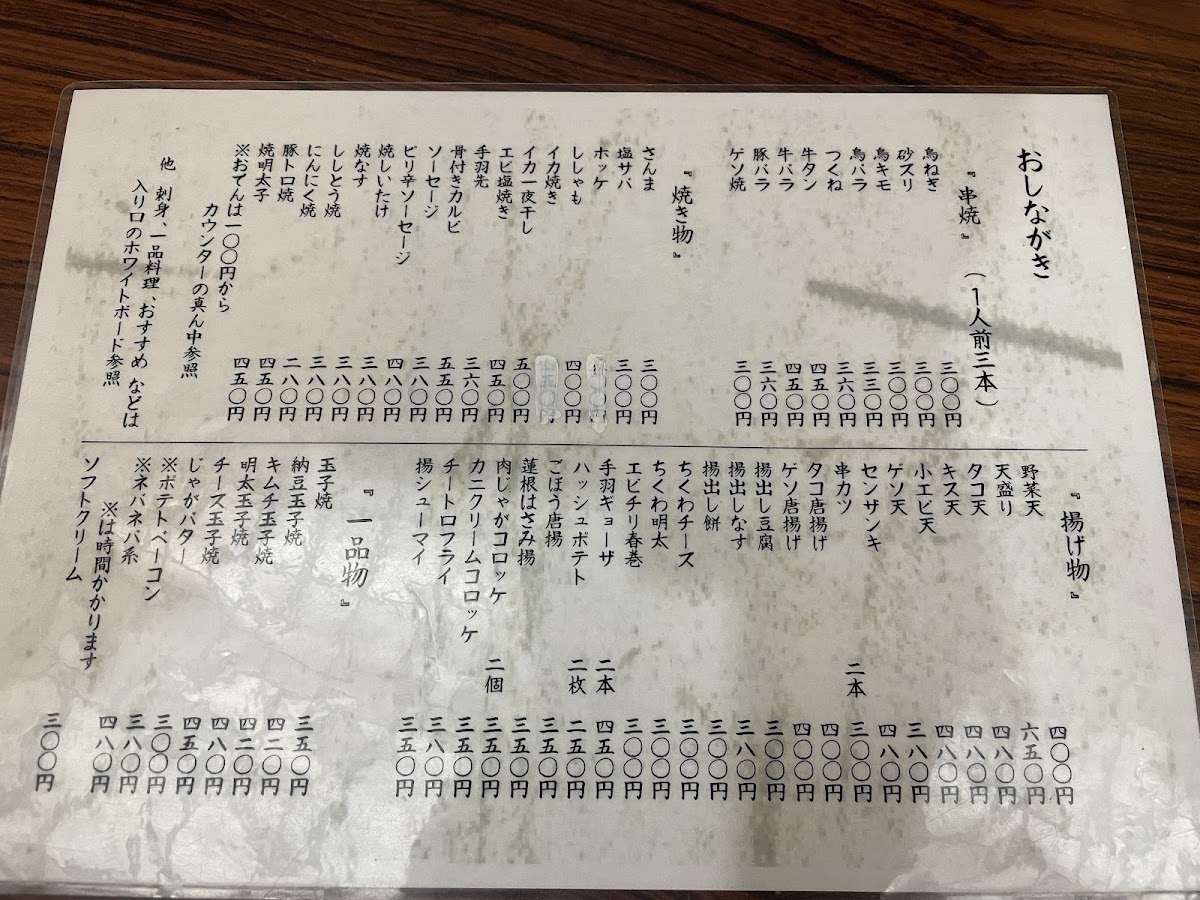 おしながき
『串焼』 (1人前三本)
鳥ねぎ 三〇〇円
砂ズリ 三〇〇円
鳥キモ 三〇〇円
鳥バラ 三三〇円
つくね 三六〇円
牛タン 四五〇円
牛バラ 四五〇円
豚バラ 三六〇円
ゲソ焼 三〇〇円
『焼き物』
さんま 三〇〇円
塩サバ 三〇〇円
ホッケ
ししゃも 四〇〇円
イカ焼き
イカ一夜干し 五〇〇円
エビ塩焼き 四五〇円
手羽先 三六〇円
骨付きカルビ 五五〇円
ソーセージ 三八〇円
ピリ辛ソーセージ 四八〇円
焼しいたけ 三八〇円
焼なす 三八〇円
ししとう焼 三八〇円
にんにく焼 二八〇円
豚トロ焼 四五〇円
焼明太子 四五〇円
※おでんは一〇〇円から
カウンターの真ん中参照
他 刺身、一品料理、おすすめ などは
入り口のホワイトボード参照
『揚げ物』
野菜天 四〇〇円
天盛り 六五〇円
タコ天 四八〇円
キス天 四八〇円
小エビ天 四八〇円
ゲソ天 三八〇円
センサンキ 四八〇円
串カツ 二本 三〇〇円
タコ唐揚げ 四〇〇円
ゲソ唐揚げ 四〇〇円
揚出し豆腐 三〇〇円
揚出しなす 三八〇円
揚出し餅 三〇〇円
ちくわチーズ 三〇〇円
ちくわ明太 三〇〇円
エビチリ春巻 三〇〇円
手羽ギョーザ 二本 四五〇円
ハッシュポテト 二枚 二五〇円
ごぼう唐揚 三五〇円
蓮根はさみ揚 三五〇円
肉じゃがコロッケ 二個 三五〇円
カニクリームコロッケ 三五〇円
チートロフライ 三八〇円
揚シューマイ 三五〇円
『一品物』
玉子焼 三五〇円
納豆玉子焼 四二〇円
キムチ玉子焼 四二〇円
明太玉子焼 四八〇円
チーズ玉子焼 四五〇円
じゃがバター 三〇〇円
※ポテトベーコン 三八〇円
※ネバネバ系 四八〇円
※は時間かかります
ソフトクリーム 三〇〇円